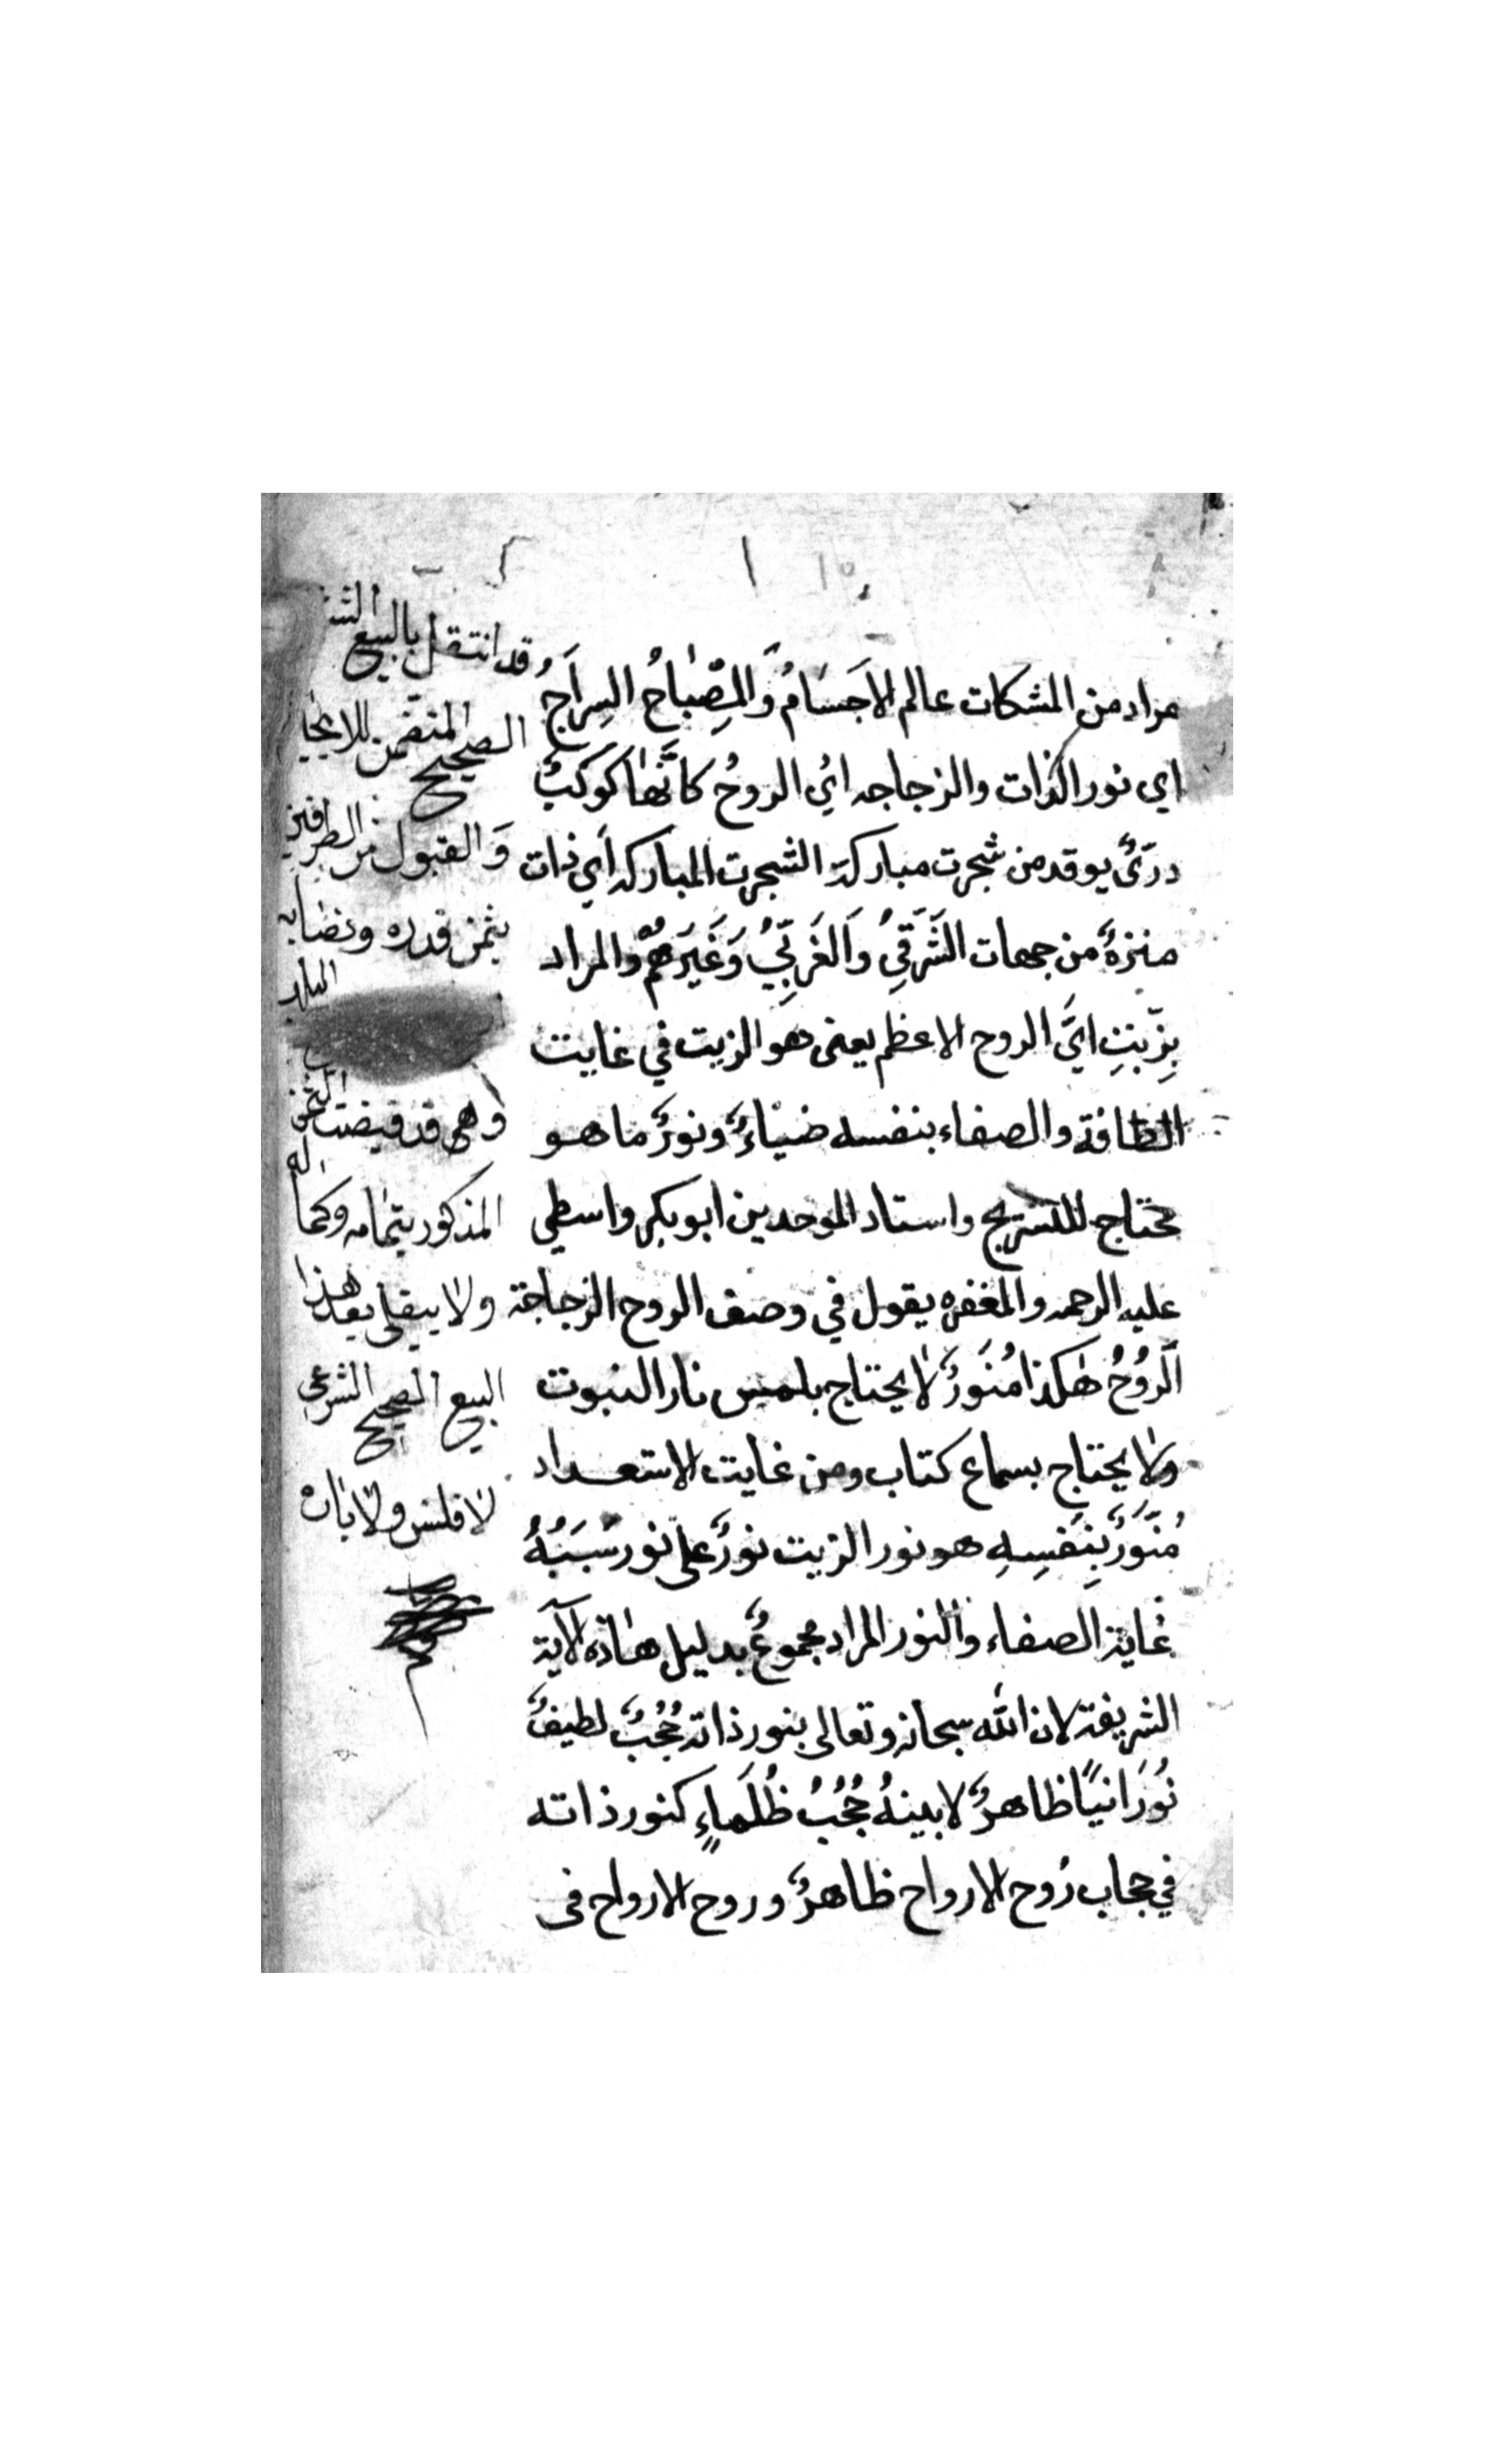 مراد من المشكات عالم الاَجسَامُ وَالمِصْبٰاحُ السِرَاجُ
اي نور الذات والزجاجه ائ الروحُ كانَّهٰا كَوكَبٌ
درّىٌ يوقد من شجرت مباركة الشجرت المباركه اَي ذات
منزهٌ من جهات الشَرقيِ وَالغَربّيِ وَغَيَرَهُمْ والمراد
بِزّيتِ ايَ الروح الاعظم يعنى هو الزيت في غايت
الطافة والصفاء بنفسه ضياءٌ ونورٌ ما هو
محتاج للتسريج واستاد الموحدين ابو بكر واسطي
عليه الرحمه والمغفره يقول في وصف الروح الزجاجة
اَلرُوُحُ هٰكذا مُنَورٌ لٰا يحتاج بلمس نار النبوت
ولٰا يحتاج بسماع كتاب ومن غايت الاستعداد
مُنَّوَرٌ بِنَفسِهِ هو نور الزيت نورٌ على نور سَبَبُهُ
غاية الصفاء والنور المراد مجموعٌ بدليل هٰاذه الآية
الشريفة لان الله سبحانه وتعالى بنور ذاته حُجُبٌ لطيفٌ
نُورَانيًا ظاهرٌ لا بينهُ حُجُبُ ظُلَماءٍ كنور ذاته
في حجاب رُوح الارواح ظاهرٌ وروح الارواح فى
وقد انتقل بالبيع
الصحيح المتضمن للايجا
وَالقبول من الطرفين
بثمن قدره ونصابه
وهى قد قبضت الثمن
المذكور بتمامه وكماله
ولٰا يبقى بعد هٰذا
البيع الصحيح الشرعي
لا فلس ولا باره